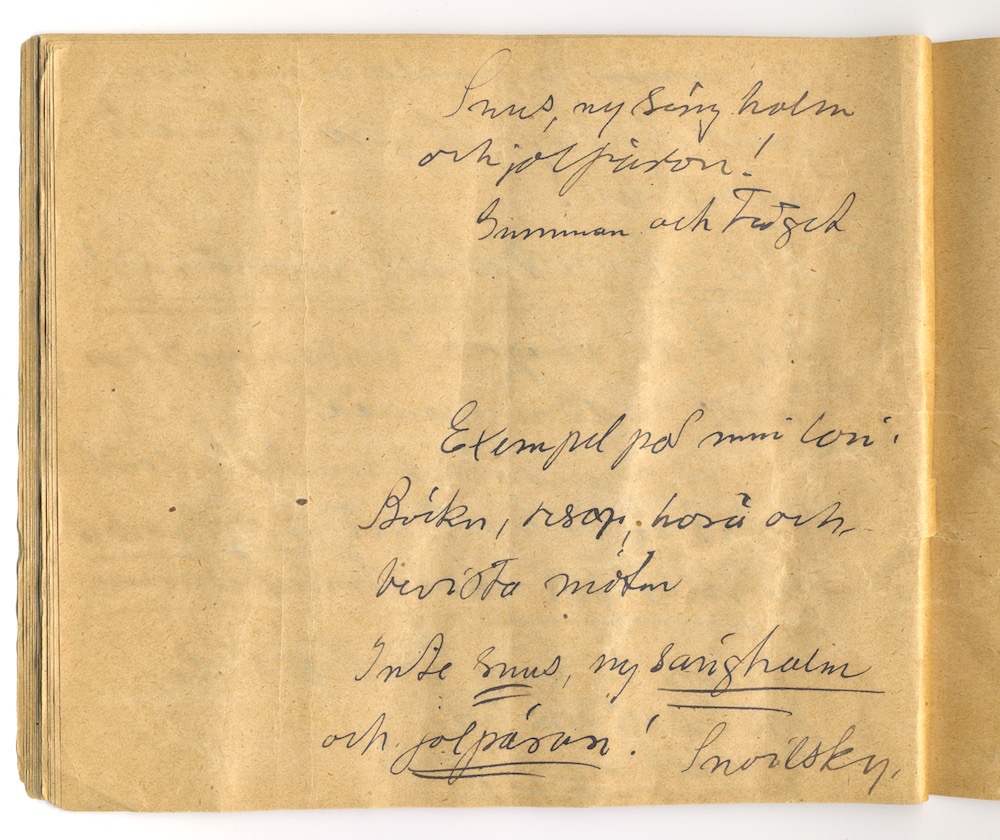 Snus, ny säng halm
och jolpäron!
Gumman och Fridget
Exempel på min lori.
Böcker, resor, hora och
bevista möten
Inte snus, ny sängholm
och jolpäron! Snoilsky.